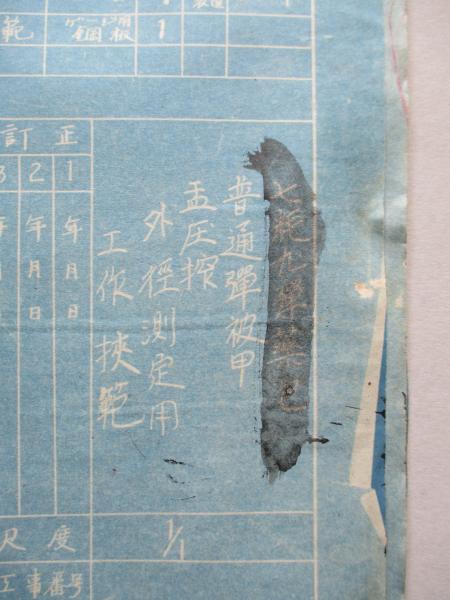 範 ゲージ用鋼板 1
訂正
3 2 1
年月日
年月日
普通彈被甲
盂圧搾
外徑測定用
工作挾範
尺度 1/1
工事番号